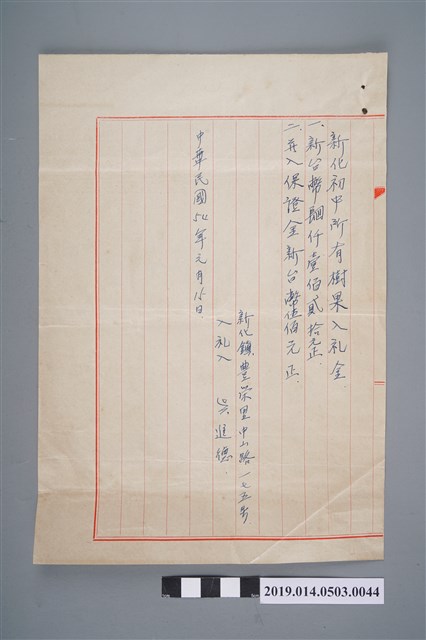 新化初中所有樹果入礼金.
一.新台幣肆仟壹佰貳拾元正.
二.并入保證金新台幣伍佰元正.
新化鎮豐榮里中山路一七五号
入礼人 吳進德.
中華民國54年元月15日.
2019.014.0503.0044